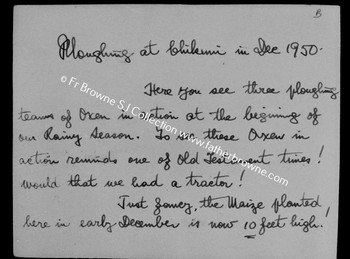 B
Ploughing at Chikuni in Dec 1950.
Here you see three ploughing
teams of Oxen in action at the begining of
our Rainy Season. To see these Oxen in
action reminds one of Old Testament times!
Would that we had a tractor!
Just fancy, the Maize planted
here in early December is now 10 feet high!
© Fr Browne S.J. Collection www.fatherbrowne.com